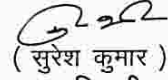 ( सुरेश कुमार )